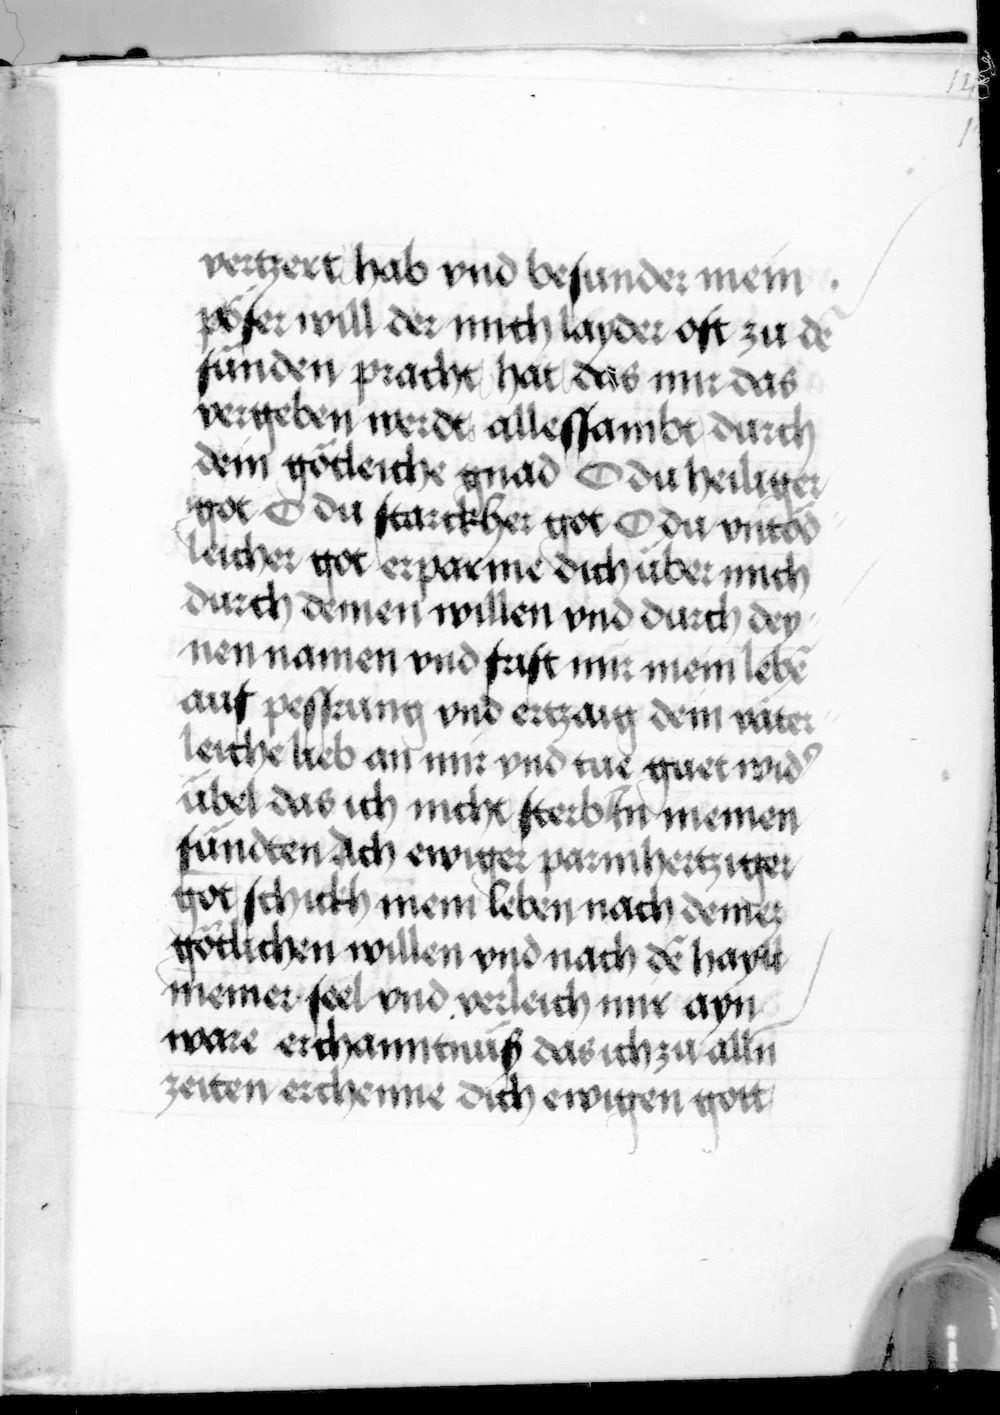 vertzert hab vnd besunder mein
pöser will der mich layder oft zu dē
sünden pracht hat das mir das
vergeben werdt allessambt durch
dein götleiche gnad O du heiliger
got O du starckher got O du vntöd
leicher got erparme dich über mich
durch deinen willen vnd durch dey
nen namen vnd frist mir mein lebē
auf pessrung vnd ertzaig dein väter
leiche lieb an mir vnd tue guet wid᾽
übel das ich nicht sterb In meinen
sündten Ach ewiger parmhertziger
got schickh mein leben nach deiner
götlichen willen vnd nach dē hayll
meiner seel vnd verleich mir ayn
ware erchanntnüß das ich zu alln
zeiten erchenne dich ewigen gott